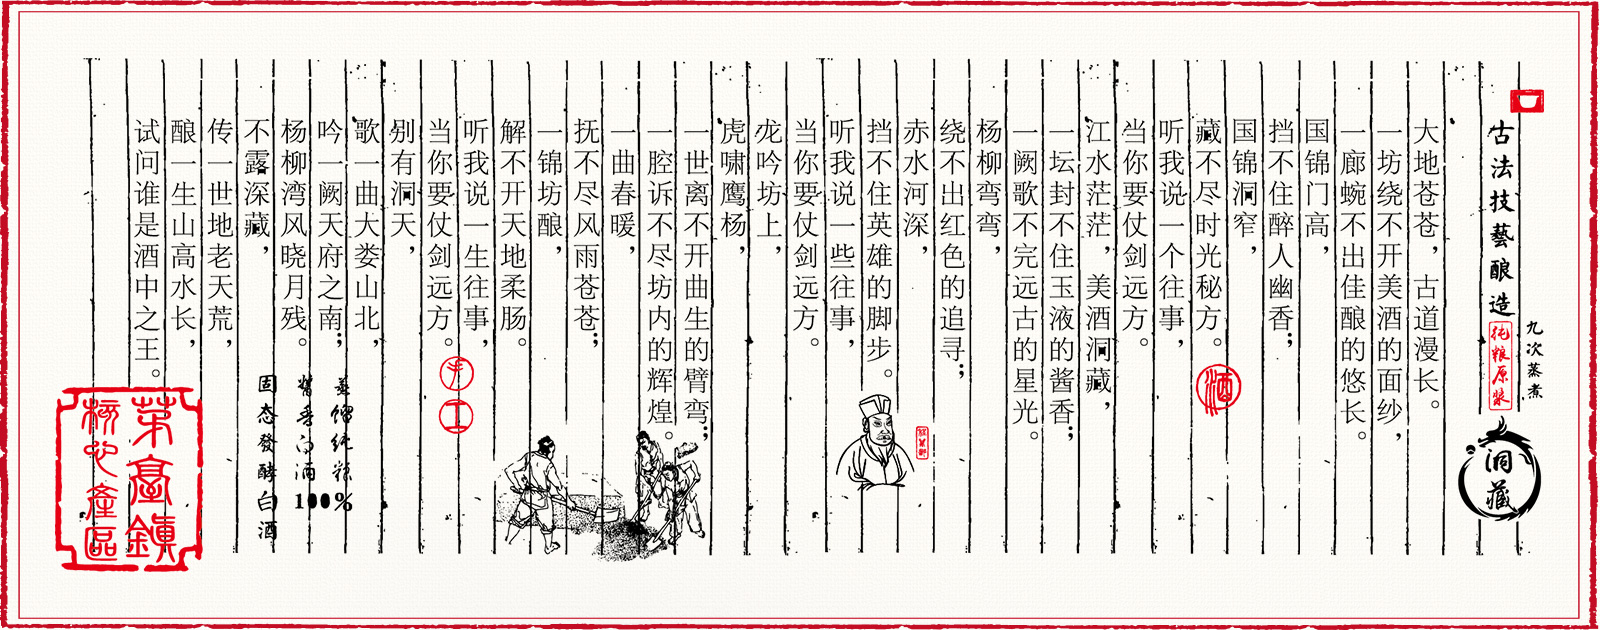 九次蒸煮
古法技藝酿造
纯粮原浆
洞藏
大地苍苍，古道漫长。
一坊绕不开美酒的面纱，
一廊蜿不出佳酿的悠长。
国锦门高，
挡不住醉人幽香；
国锦洞窄，
藏不尽时光秘方。
听我说一个往事，
当你要仗剑远方。
酒
江水茫茫，美酒洞藏，
一坛封不住玉液的酱香；
一阙歌不完远古的星光。
杨柳弯弯，
绕不出红色的追寻；
赤水河深，
挡不住英雄的脚步。
听我说一些往事，
当你要仗剑远方。
龙吟坊上，
虎啸鹰杨，
一世离不开曲生的臂弯；
一腔诉不尽坊内的辉煌。
一曲春暖，
抚不尽风雨苍苍；
一锦坊酿，
解不开天地柔肠。
听我说一生往事，
当你要仗剑远方。
别有洞天，
歌一曲大娄山北，
吟一阙天府之南；
杨柳湾风晓月残。
不露深藏，
传一世地老天荒，
酿一生山高水长，
试问谁是酒中之王。
手工
酱香白酒100%
固态發酵白酒
茅臺鎮
核心產區